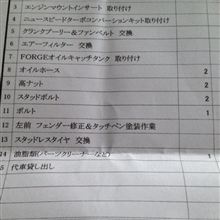 3 エンジンマウントインサート 取り付け
4 ニュースピードターボコンバーションキット取り付け
5 クランクプーリー＆ファンベルト 交換
6 エアーフィルター 交換
7 FORGEオイルキャッチタンク 取り付け
8 オイルホース 2
9 高ナット 2
10 スタッドボルト 2
11 ボルト 1
12 左前 フェンダー修正＆タッチペン塗装作業
13 スタッドレスタイヤ 交換
14 油脂類(パーツクリーナーなど) 1
5 代車貸し出し